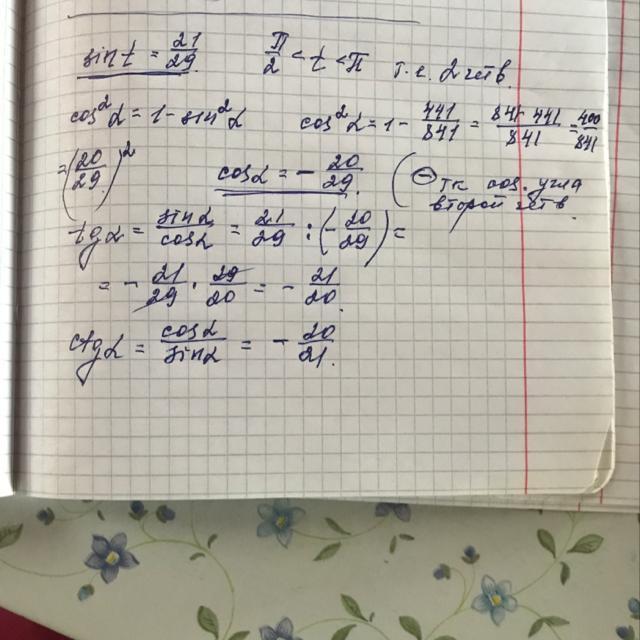 sin t = 21/29 π/2 < t < π т.е. 2 четв.
cos²α = 1 - sin²α cos²α = 1 - 441/841 = 841-441/841 = 400/841
= (20/29)² cosα = - 20/29. (⊖ тк cos. угла
второй четв.
tgα = sinα/cosα = 21/29 : (- 20/29) =
= - 21/29 · 29/20 = - 21/20.
ctgα = cosα/sinα = - 20/21.